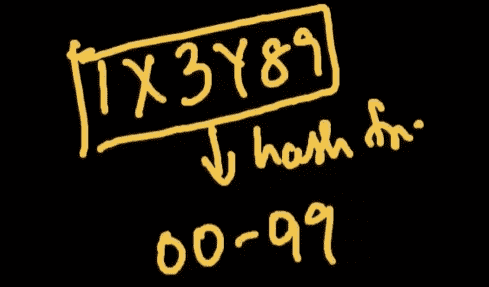 1X3Y89
hash fn.
00-99